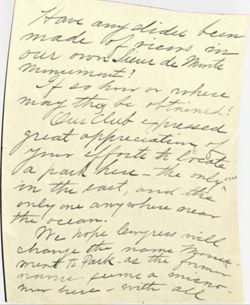 Have any slides been
made of scenes in
our own Sieur de Monts
Monument?
If so how or where
may they be obtained?
Our Club expressed
great appreciation of
your efforts to create
a park here - the only one
in the east, and the
only one anywhere near
the ocean.
We hope Congress will
change the name Monu-
ment to Park - as the former
name seems a misno-
mer here - with all